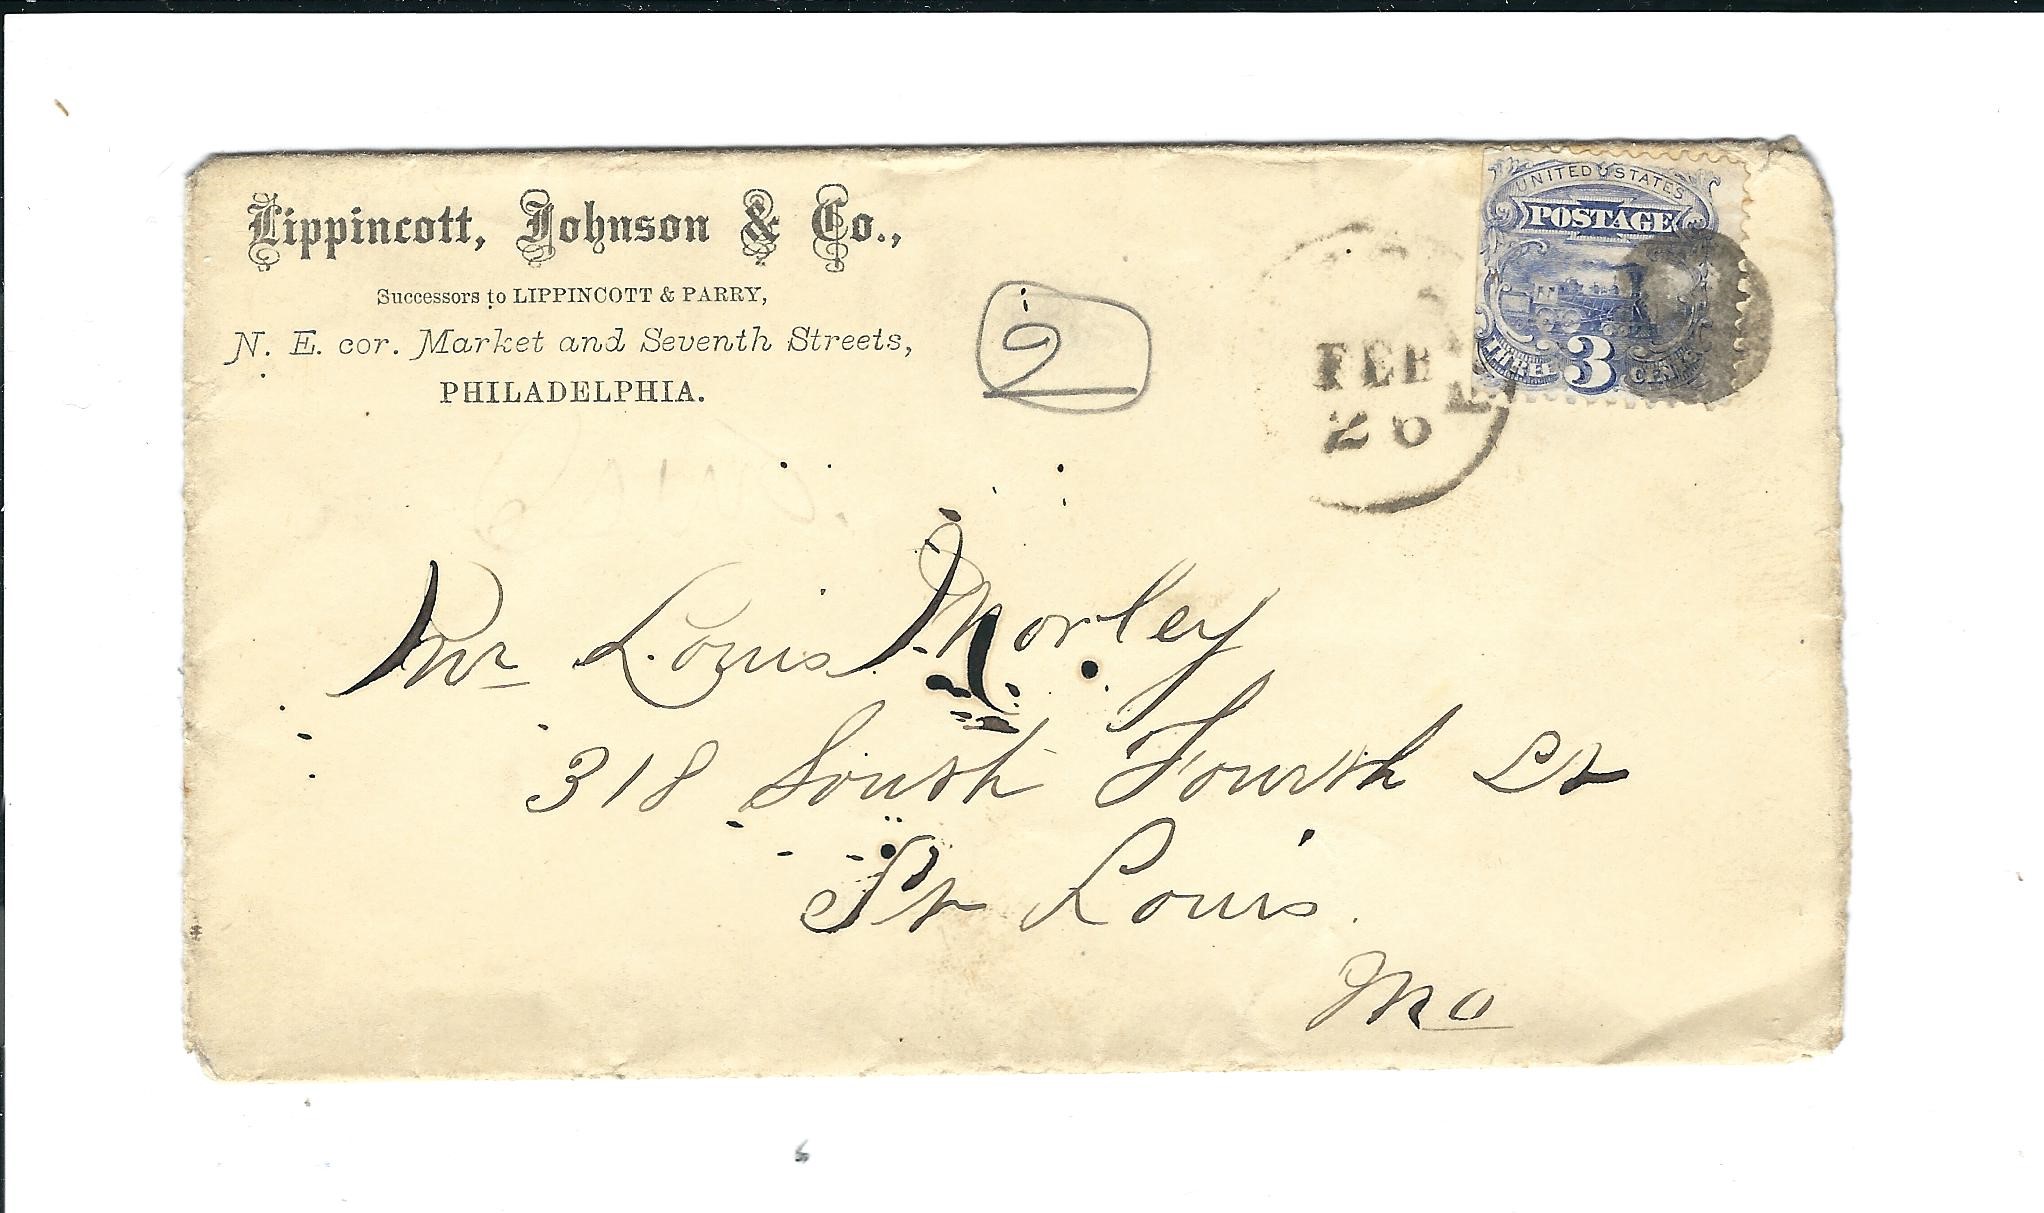 Lippincott, Johnson & Co.,
Successors to LIPPINCOTT & PARRY,
N. E. cor. Market and Seventh Streets,
PHILADELPHIA.
UNITED STATES
POSTAGE
THREE 3 CENTS
FEB
26
Mr Louis Morley
318 South Fourth St
St Louis.
Mo